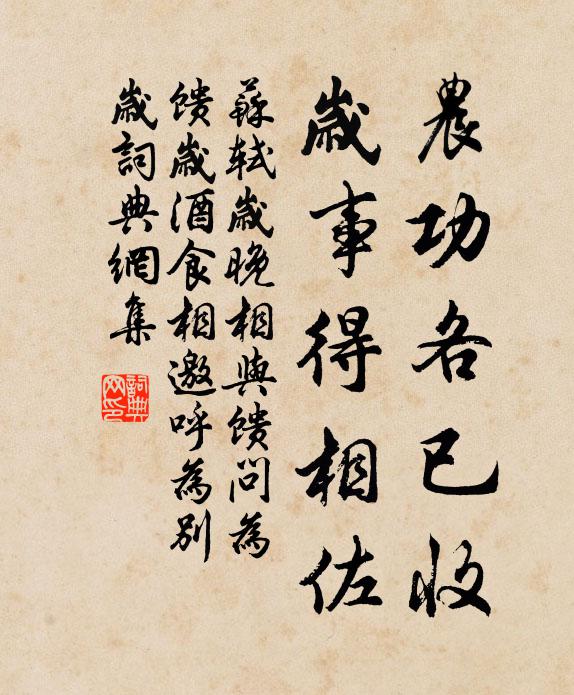 農功各已收
歲事得相佐
蘇軾歲晚相與馈問為
馈歲酒食相邀呼為別
歲詞典網集
詞典网印